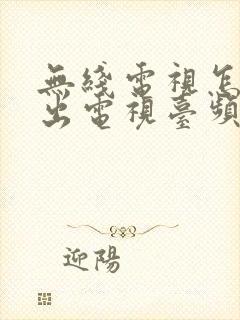 無綫電視怎
出電視臺頻
迎陽